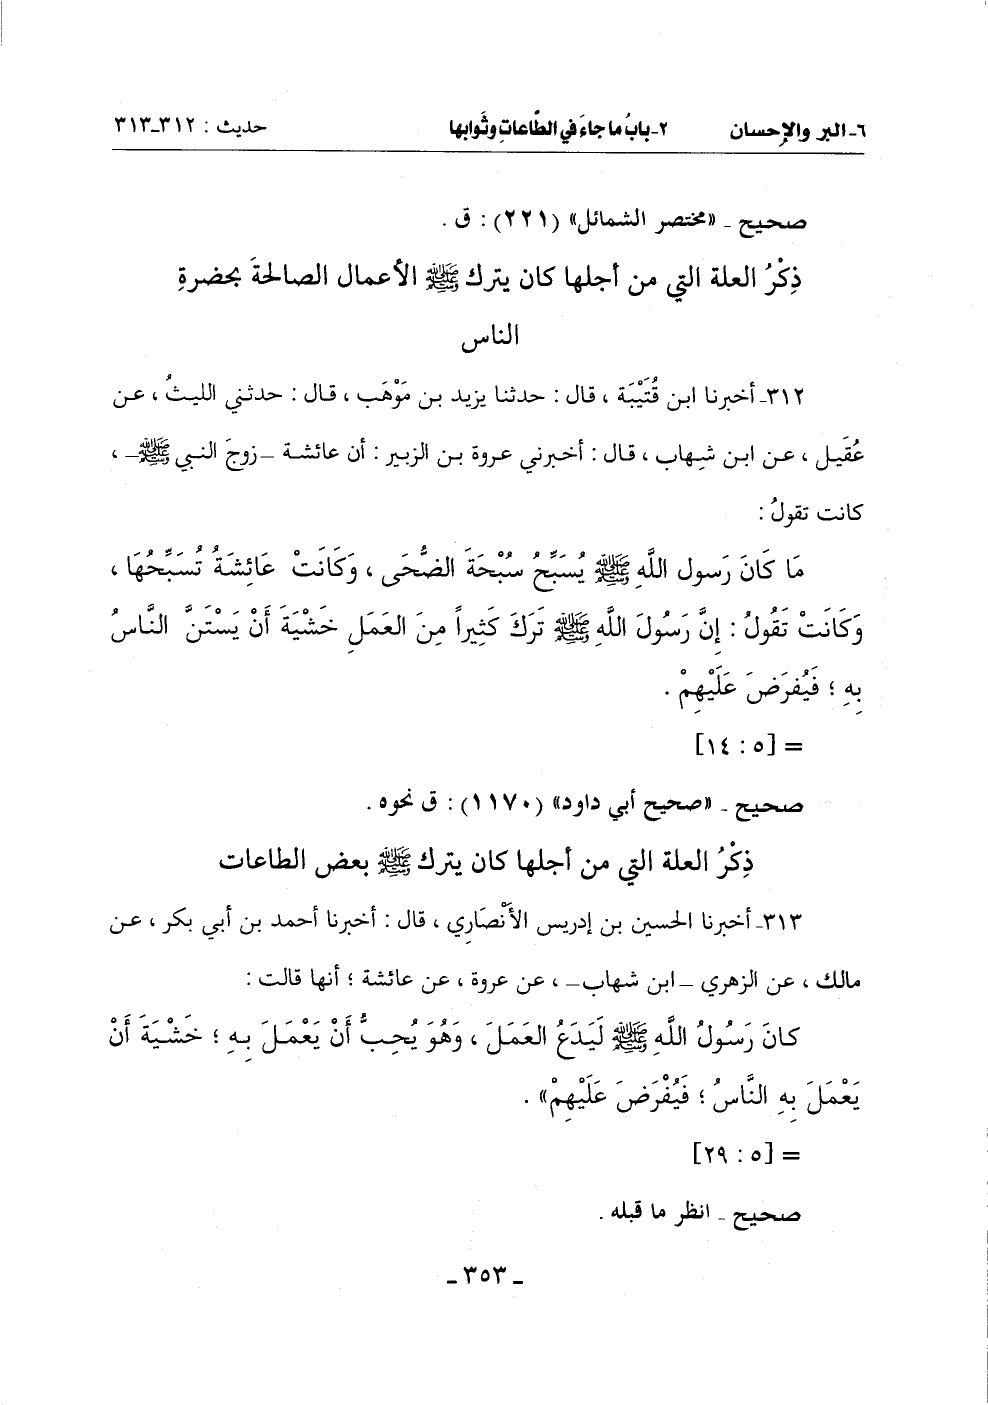 ٦ـ البر والإحسان ٢ـ بابُ ما جاءَ في الطَّاعاتِ وثَوابها حديث : ٣١٢ـ٣١٣
صحيح ـ «مختصر الشمائل» (٢٢١) : ق .
ذِكْرُ العلة التي من أجلها كان يترك ﷺ الأعمال الصالحةَ بحضرةِ
الناس
٣١٢ـ أخبرنا ابن قُتَيْبَة ، قال : حدثنا يزيد بن مَوْهَب ، قال : حدثني الليثُ ، عن
عُقَيل ، عن ابن شِهاب ، قال : أخبرني عروة بن الزبير : أن عائشة ـ زوجَ النبي ﷺ ـ ،
كانت تقولُ :
مَا كَانَ رَسول اللَّهِ ﷺ يُسَبِّحُ سُبْحَةَ الضُّحَى ، وَكَانَتْ عَائِشَةُ تُسَبِّحُهَا ،
وَكَانَتْ تَقُولُ : إِنَّ رَسُولَ اللَّهِ ﷺ تَرَكَ كَثِيراً مِنَ العَمَلِ خَشْيَةَ أَنْ يَسْتَنَّ النَّاسُ
بِهِ ؛ فَيُفرَضَ عَلَيْهِمْ .
= [٥ : ١٤]
صحيح ـ «صحيح أبي داود» (١١٧٠) : ق نحوه .
ذِكْرُ العلة التي من أجلها كان يترك ﷺ بعض الطاعات
٣١٣ـ أخبرنا الحسين بن إدريس الأَنْصَارِي ، قال : أخبرنا أحمد بن أبي بكر ، عن
مالك ، عن الزهري ـ ابن شهاب ـ ، عن عروة ، عن عائشة ؛ أنها قالت :
كَانَ رَسُولُ اللَّهِ ﷺ لَيَدَعُ العَمَلَ ، وَهُوَ يُحِبُّ أَنْ يَعْمَلَ بِهِ ؛ خَشْيَةَ أَنْ
يَعْمَلَ بِهِ النَّاسُ ؛ فَيُفْرَضَ عَلَيْهِمْ» .
= [٥ : ٢٩]
صحيح ـ انظر ما قبله .
ـ ٣٥٣ ـ